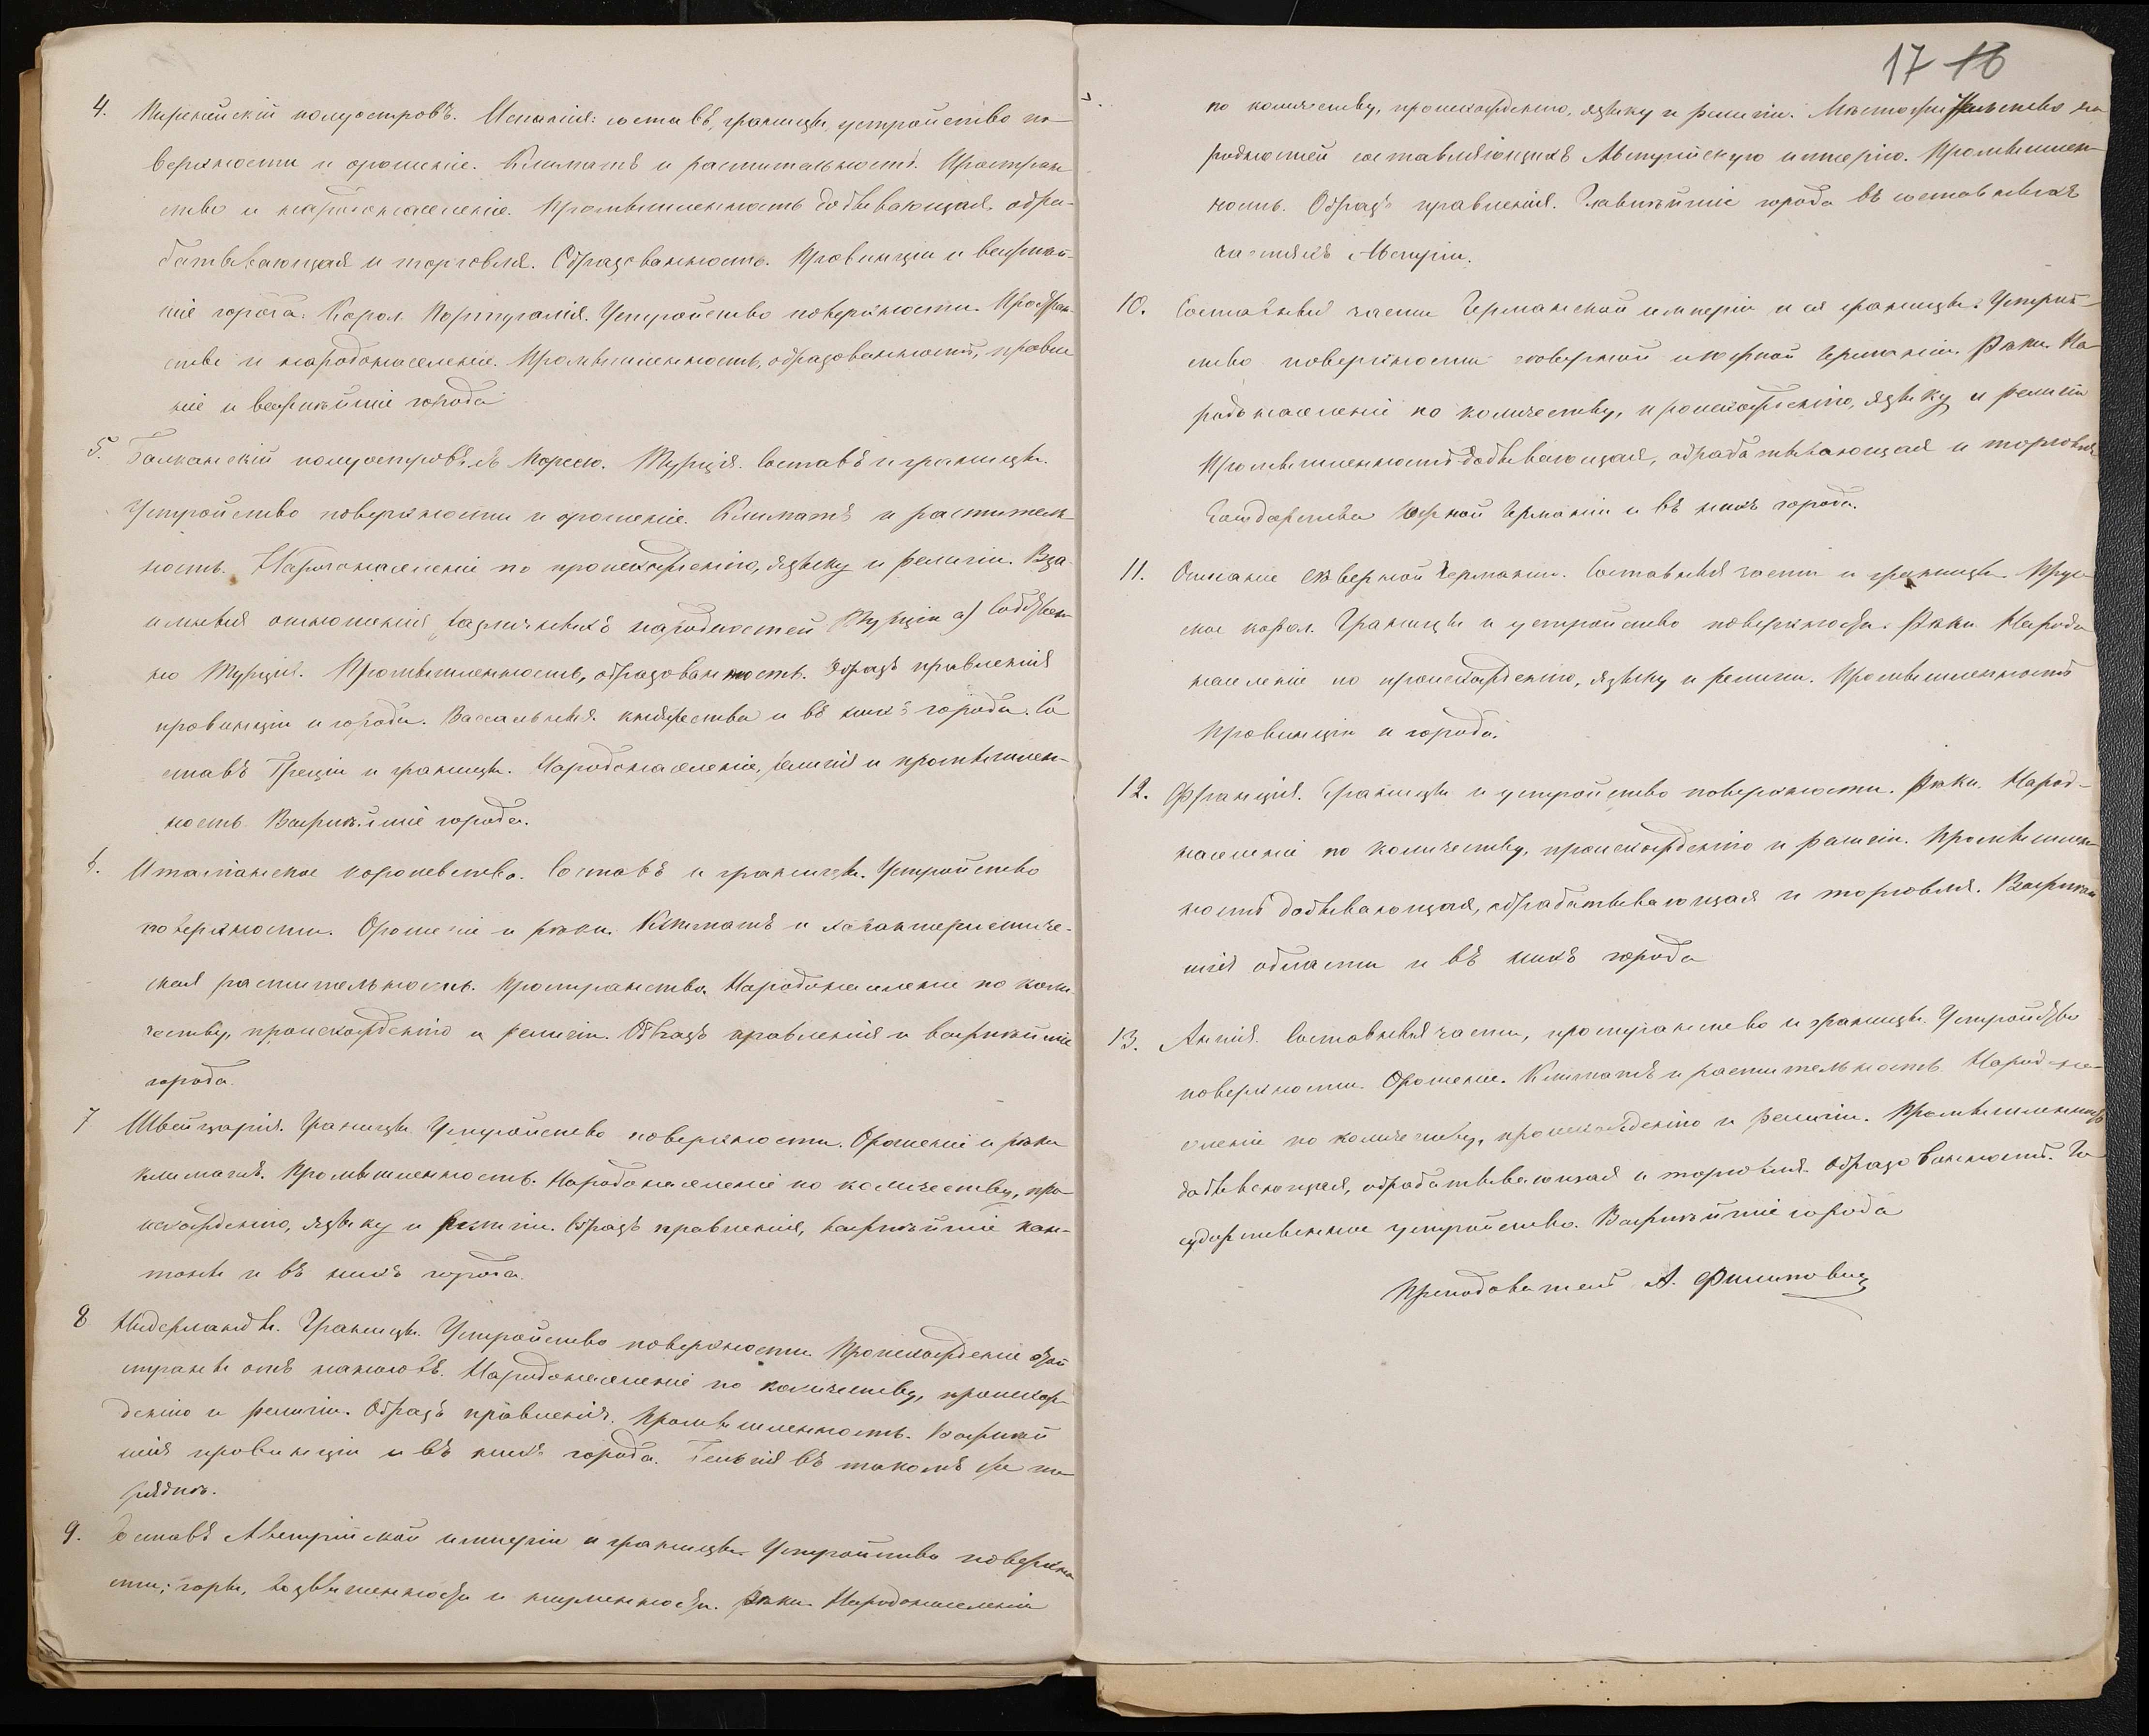 4. Пиренейскій полуостровъ. Испанія: составъ, границы, устройство по-
верхности и орошеніе. Климатъ и растительность. Простран
ство и народонаселеніе. Промышленность добывающая, обра-
батывающая и торговля. Образованность. Провинціи и важнѣй-
шіе города. Корол. Португалія. Устройство поверхности. Простран-
ство и народонаселеніе. Промышленность, образованность, провин
ніе и важнѣйшіе города
5. Балканскій полуостровъ съ Мореею. Турція. Составъ и границы.
Устройство поверхности и орошеніе. Климатъ и раститель-
ность. Народонаселеніе по происхожденію, языку и религіи. Вза-
имныя отношенія различныхъ народностей Турціи а) Собствен-
но Турція. Промышленность, образованность. Образъ правленія
провинціи и города. Вассальныя княжества и въ нихъ города. Со
ставъ Греціи и границы. Народонаселеніе, религія и промышлен-
ность. Важнѣйшіе города.
6. Италіанское королевство. Составъ и границы. Устройство
поверхности. Орошеніе и рѣки. Климатъ и характеристиче-
ская растительность. Пространство. Народонаселеніе по коли-
честву, происхожденію и религіи. Образъ правленія и важнѣйшіе
города.
7 Швейцарія. Границы Устройство поверхности. Орошеніе и рѣки
климатъ. Промышленность. Народонаселеніе по количеству, про-
исхожденію, языку и религіи. Образъ правленія, важнѣйшіе кан-
тоны и въ нихъ города.
8 Нидерланды. Границы. Устройство поверхности Происхожденіе этой
страны отъ наносовъ. Народонаселеніе по количеству, происхож-
денію и религіи. Образъ правленія. Промышленность. Важнѣй
шія провинціи и въ нихъ города. Бельгія въ такомъ же по
рядкѣ.
9. Составъ Австрійской имперіи и границы. Устройство поверхно
сти: горы, возвышенности и низменности. Рѣки. Народонаселеніе
17 16
по количеству, происхожденію, языку и религіи. Мѣстожительство на
родностей составляющихъ Австрійскую имперію. Промышлен-
ность. Образъ правленія. Главнѣйшіе города въ составныхъ
частяхъ Австріи.
10. Составныя части Германской имперіи и ея границы. Устрой-
ство поверхности сѣверной и южной Германіи. Рѣки. На
родонаселеніе по количеству, происхожденію, языку и религіи
Промышленность добывающая, обрабатывающая и торговля
Государства Южной Германіи и въ нихъ города.
11. Описаніе сѣверной Германіи. Составныя части и границы. Прус-
ское корол. Границы и устройство поверхности. Рѣки Народо
населеніе по происхожденію, языку и религіи. Промышленность
Провинціи и города.
12. Франція. Границы и устройство поверхности. Рѣки. Народ-
населеніе по количеству, происхожденію и религіи. Промышлен
ность добывающая, обрабатывающая и торговля. Важнѣй
шія области и въ нихъ города
13. Англія. Составныя части, пространство и границы. Устройство
поверхности. Орошеніе. Климатъ и растительность. Народ-на-
селеніе по количеству, происхожденію и религіи. Промышленность
добывающая, обрабатывающая и торговля. Образованность. Го
сударственное устройство. Важнѣйшіе города
Преподаватель А. Филипович